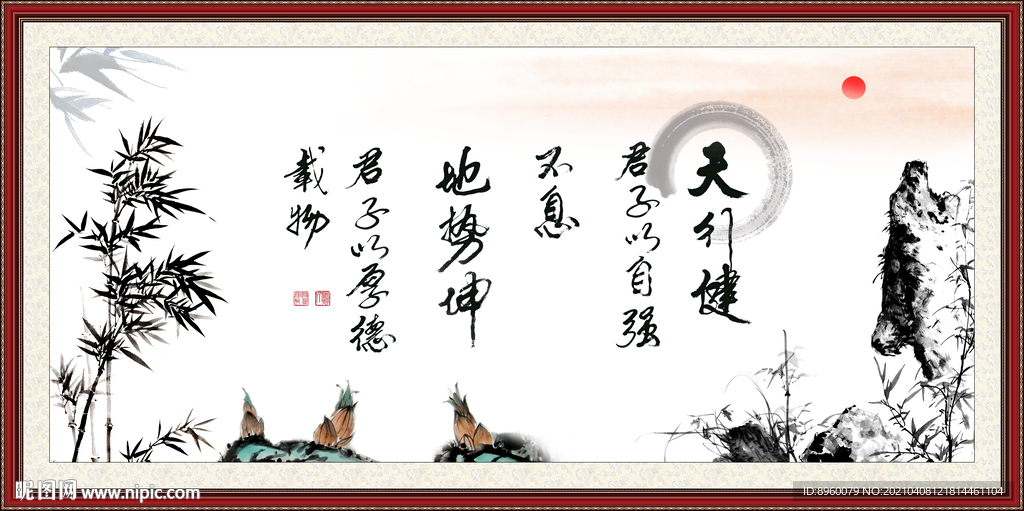 天行健
君子以自强
不息
地势坤
君子以厚德
载物
昵图网 www.nipic.com
ID:8960079 NO:20210408121814461104